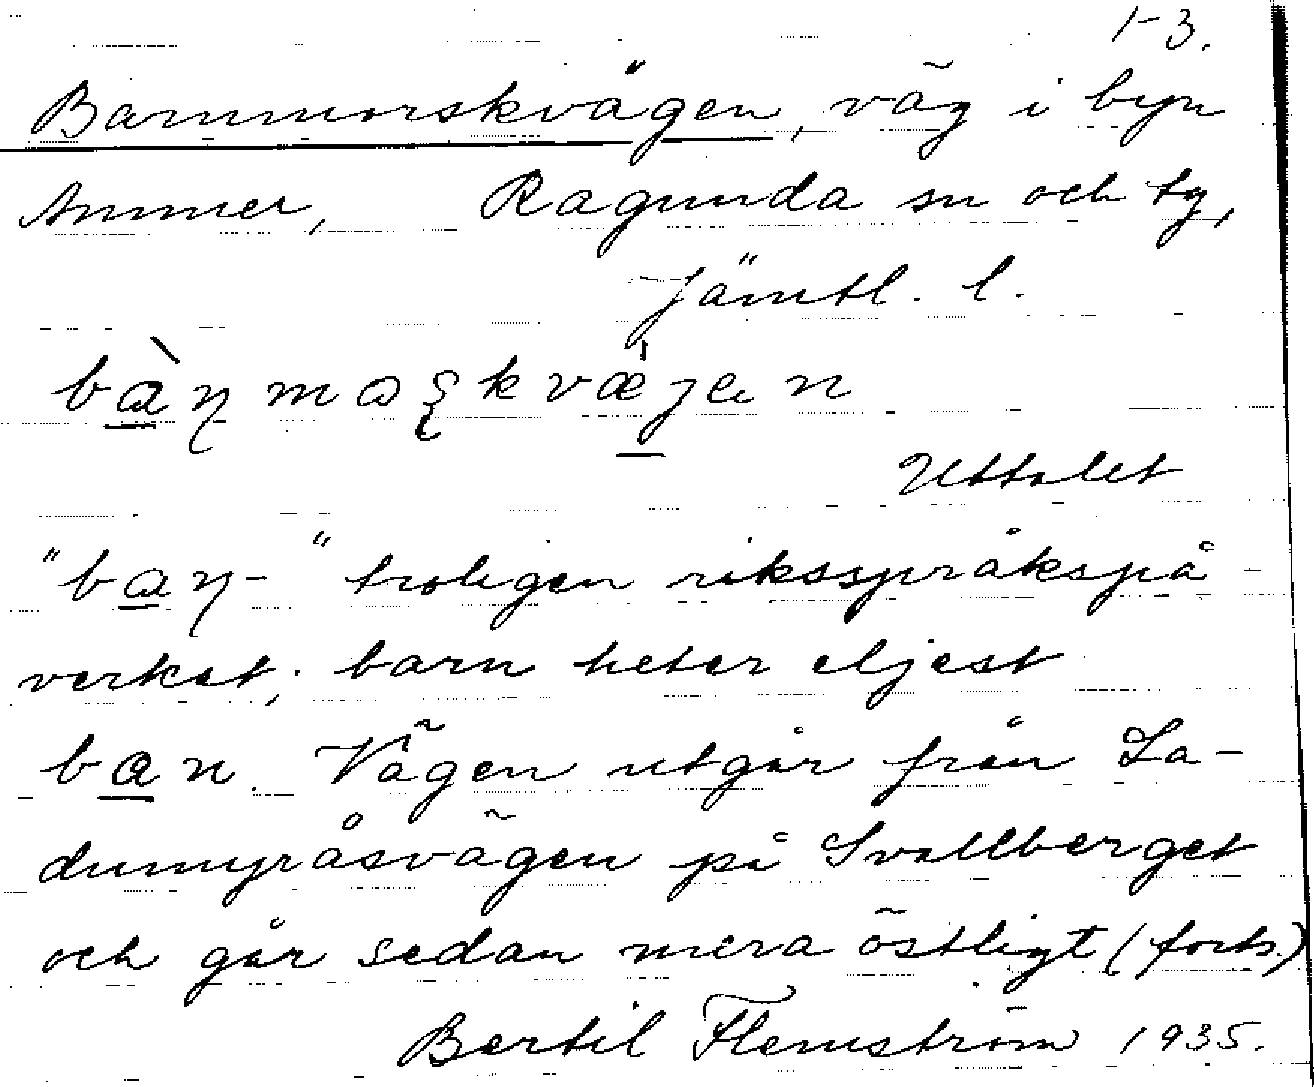 1-3.
Barnmorskvägen, väg i byn
Ammer, Ragunda sn och tg,
Jämtl. l.
Uttalet
"ban-" troligen riksspråkspå-
verkat; barn heter eljest
ban. Vägen utgår från La-
dumyråsvägen på Svallberget
och går sedan mera östligt (forts.)
Bertil Flemström 1935.